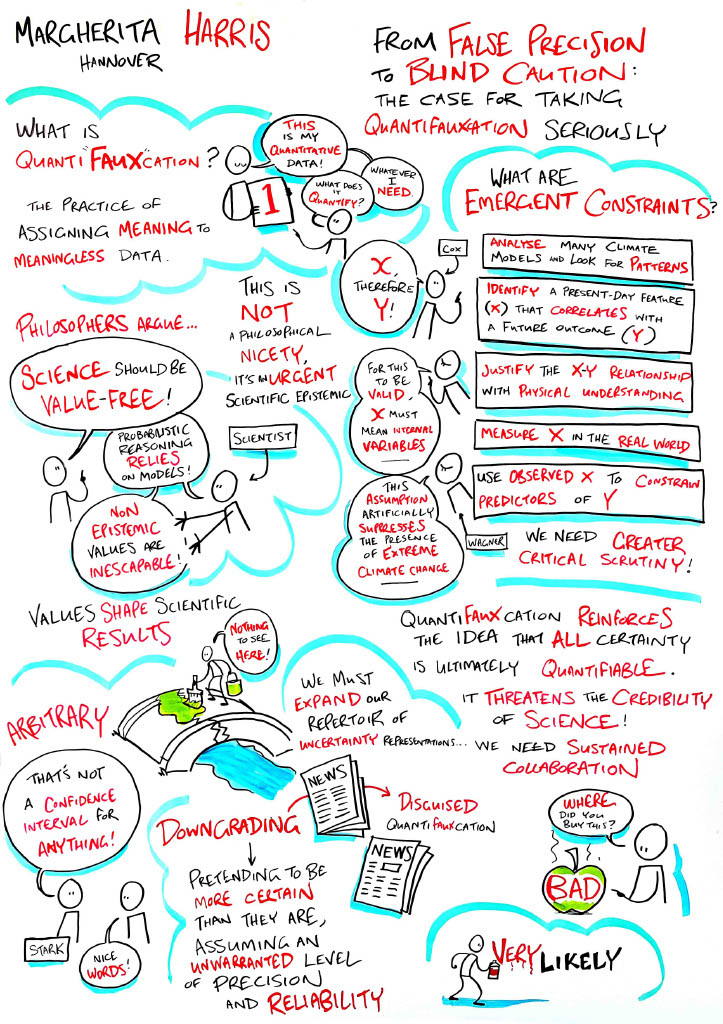 MARGHERITA HARRIS
HANNOVER
FROM FALSE PRECISION
TO BLIND CAUTION:
THE CASE FOR TAKING
QUANTIFAUXCATION SERIOUSLY
WHAT IS
QUANTI"FAUX"CATION?
THE PRACTICE OF
ASSIGNING MEANING TO
MEANINGLESS DATA.
THIS
IS MY
QUANTITATIVE
DATA!
1
WHAT DOES
IT
QUANTIFY?
WHATEVER
I
NEED.
WHAT ARE
EMERGENT CONSTRAINTS?
COX
X,
THEREFORE
Y!
ANALYSE MANY CLIMATE
MODELS AND LOOK FOR PATTERNS
IDENTIFY A PRESENT-DAY FEATURE
(X) THAT CORRELATES WITH
A FUTURE OUTCOME (Y)
JUSTIFY THE X-Y RELATIONSHIP
WITH PHYSICAL UNDERSTANDING
MEASURE X IN THE REAL WORLD
USE OBSERVED X TO CONSTRAIN
PREDICTORS OF Y
FOR THIS
TO BE
VALID,
X MUST
MEAN INTERNAL
VARIABLES
THIS
ASSUMPTION
ARTIFICIALLY
SUPRESSES
THE PRESENCE
OF EXTREME
CLIMATE CHANGE
WAGNER
WE NEED GREATER
CRITICAL SCRUTINY!
THIS IS
NOT
A PHILOSOPHICAL
NICETY,
IT'S AN URGENT
SCIENTIFIC EPISTEMIC
PHILOSOPHERS ARGUE...
SCIENCE SHOULD BE
VALUE-FREE!
PROBABILISTIC
REASONING
RELIES
ON MODELS!
SCIENTIST
NON
EPISTEMIC
VALUES ARE
INESCAPABLE!
VALUES SHAPE SCIENTIFIC
RESULTS
NOTHING
TO SEE
HERE!
QUANTIFAUXCATION REINFORCES
THE IDEA THAT ALL CERTAINTY
IS ULTIMATELY QUANTIFIABLE.
IT THREATENS THE CREDIBILITY
OF SCIENCE!
WE NEED SUSTAINED
COLLABORATION
WE MUST
EXPAND OUR
REPERTOIR OF
UNCERTAINTY REPRESENTATIONS...
ARBITRARY
THAT'S NOT
A CONFIDENCE
INTERVAL FOR
ANYTHING!
STARK
NICE
WORDS!
DOWNGRADING
PRETENDING TO BE
MORE CERTAIN
THAN THEY ARE,
ASSUMING AN
UNWARRANTED LEVEL
OF PRECISION
AND RELIABILITY
NEWS
DISGUISED
QUANTIFAUXCATION
NEWS
WHERE
DID YOU
BUY THIS?
BAD
VERY LIKELY